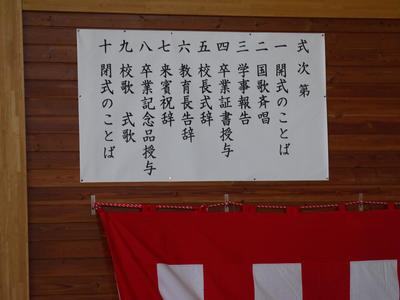 式次第
一 開式のことば
二 国歌斉唱
三 学事報告
四 卒業証書授与
五 校長式辞
六 教育長告辞
七 来賓祝辞
八 卒業記念品授与
九 校歌 式歌
十 閉式のことば